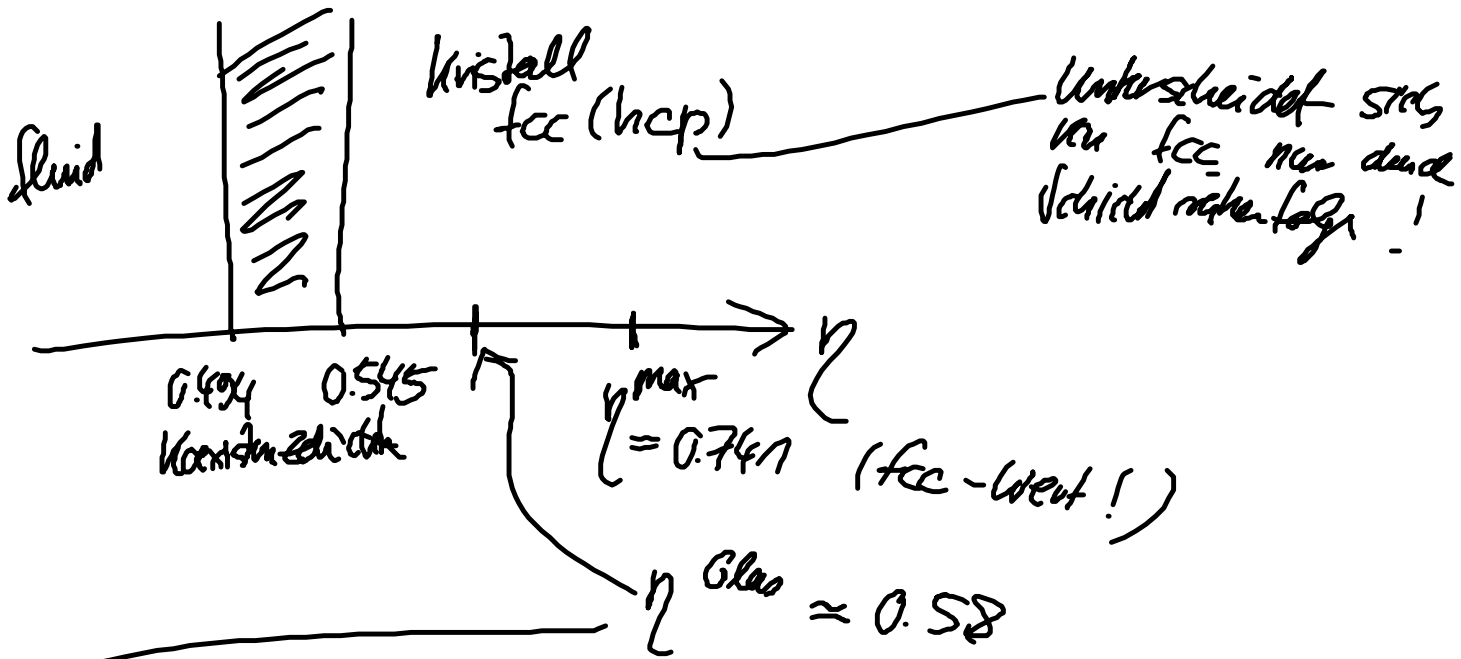 fluid
Kristall
fcc (hcp)
Unterscheidet sich
von fcc nur durch
Schichtreihenfolge !
0.494 0.545
Koexistenzdichte
η^max
= 0.741 (fcc-Wert!)
η
η^Glas ≈ 0.58